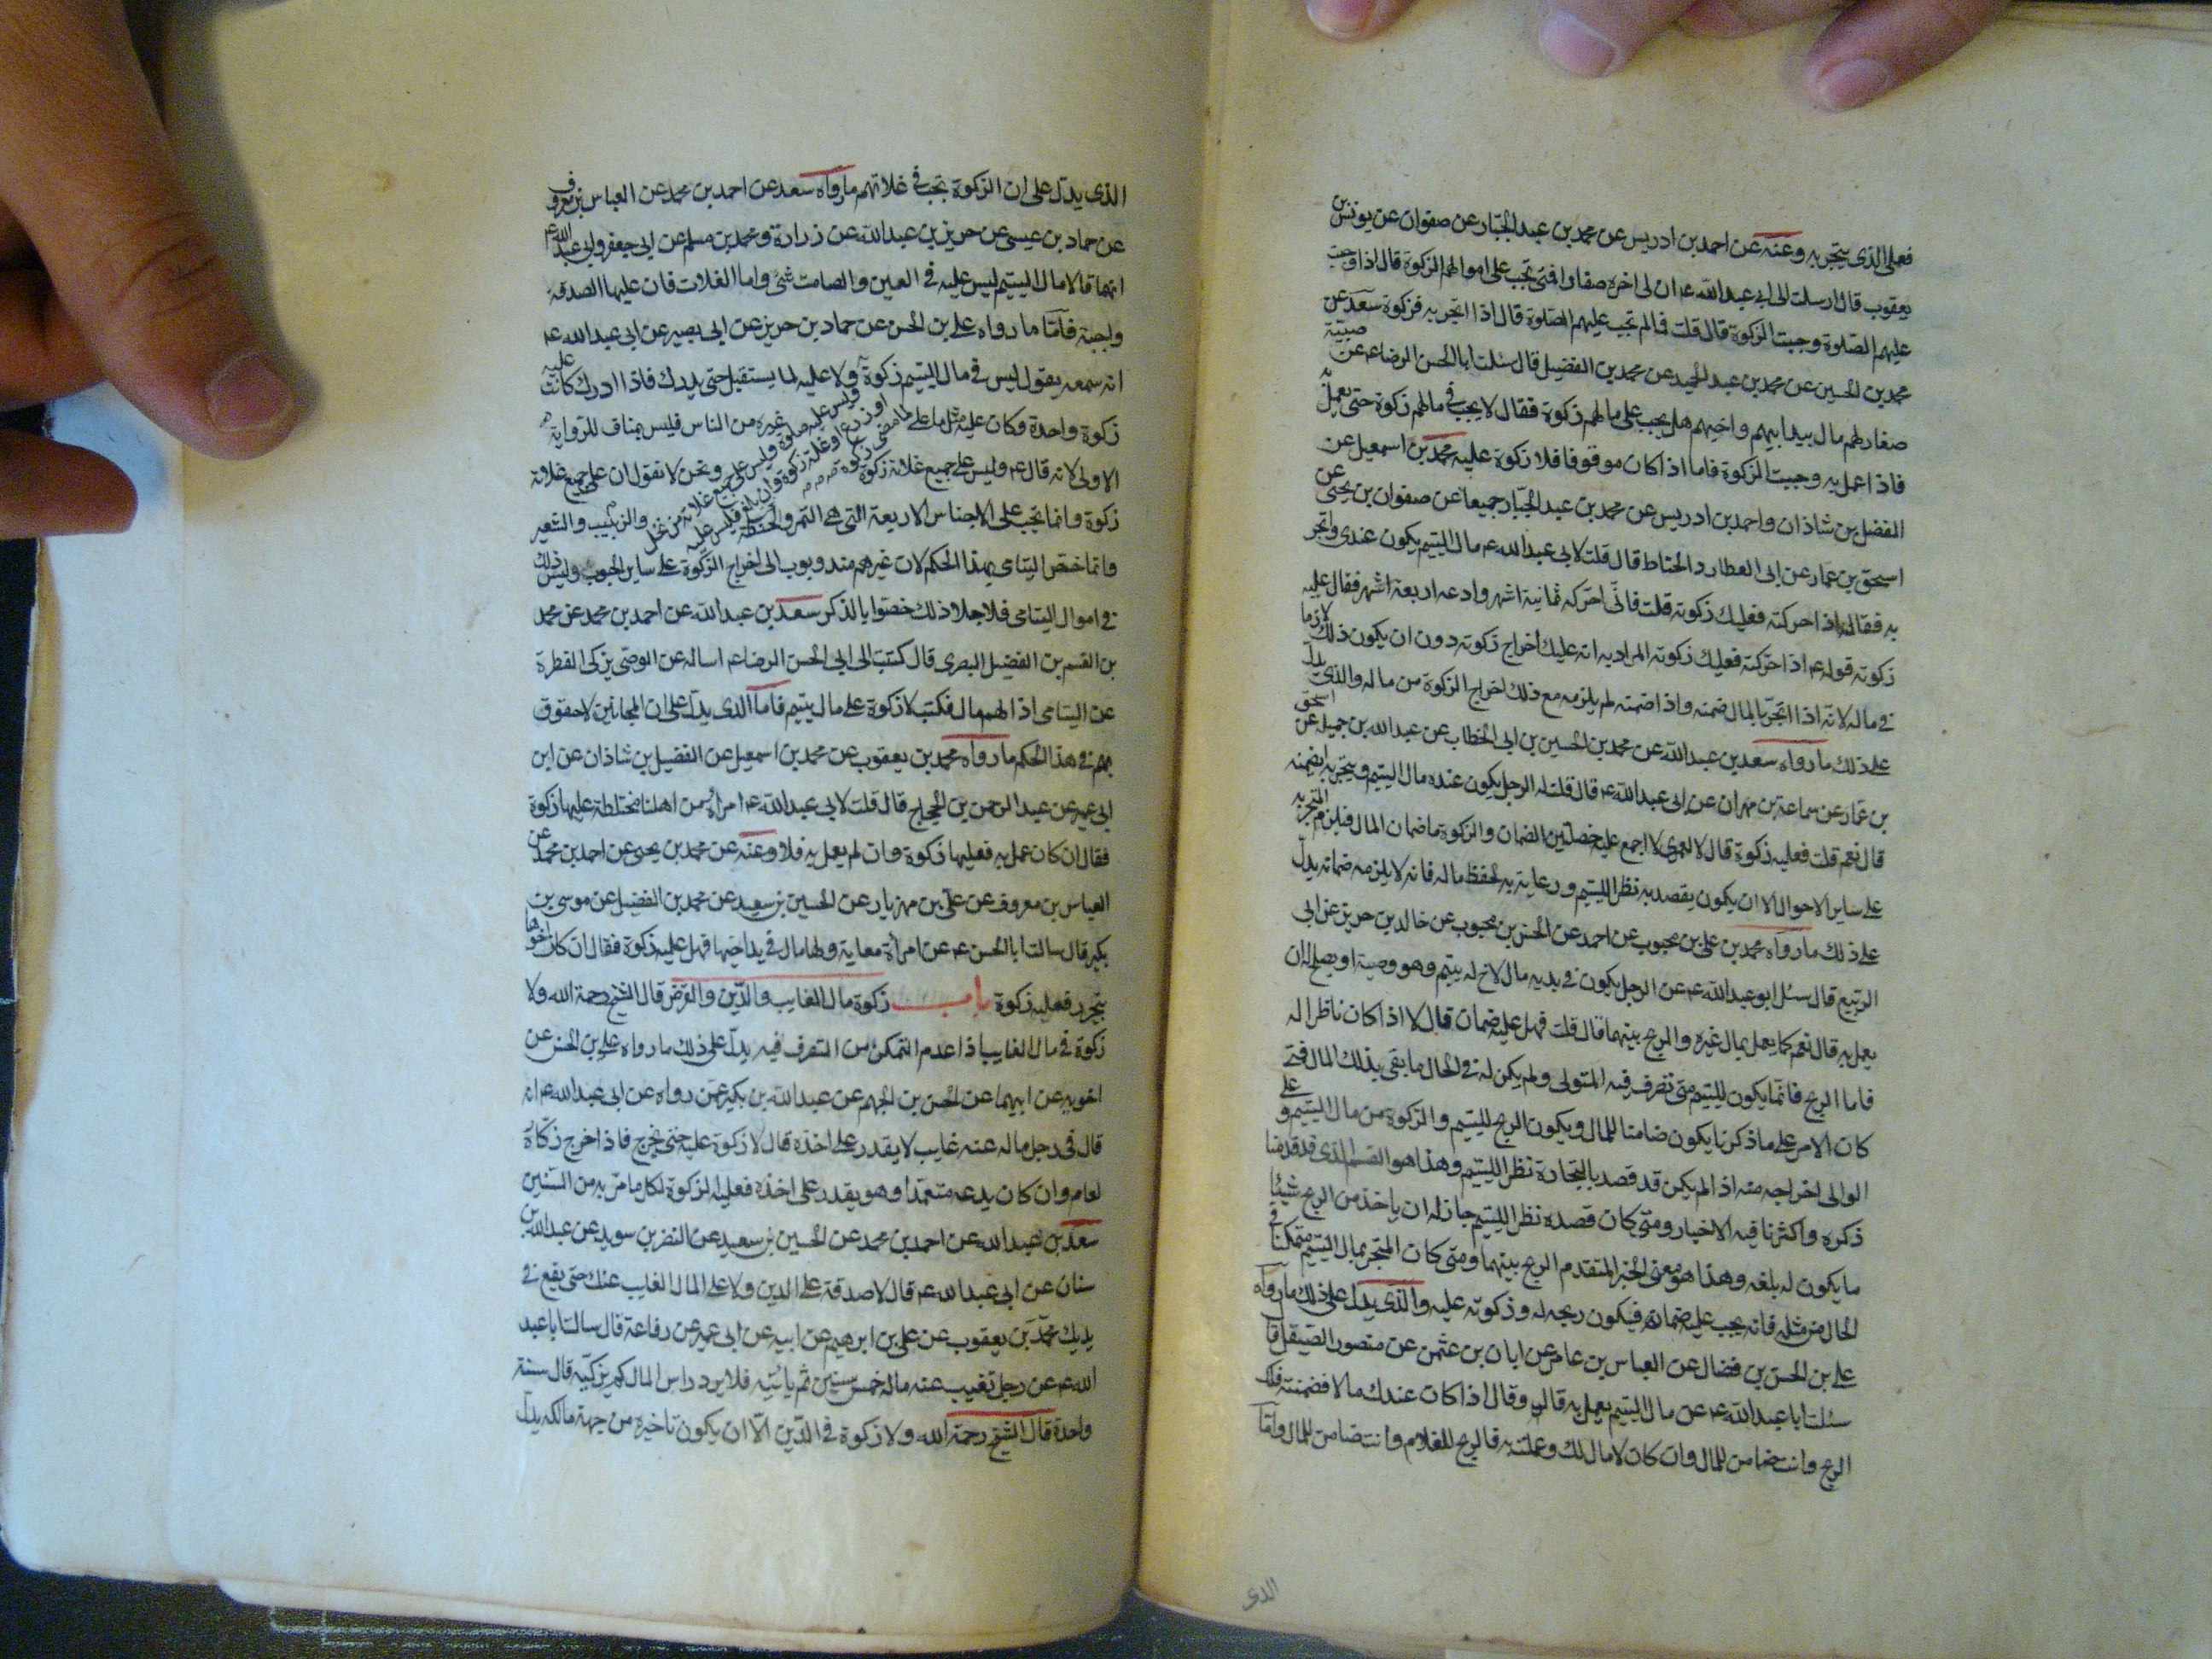 فعلى الذى يتجر به وعنه عن احمد بن ادريس عن محمد بن عبد الجبار عن صفوان عن يونس بن
يعقوب قال ارسلت الى ابى عبد الله ع ان لى اخوة صغارا فمتى تجب على اموالهم الزكوة قال اذا وجبت
عليهم الصلوة وجبت الزكوة قال قلت فما لم تجب عليهم الصلوة قال اذا اتجر به فزكوة سعد عن
محمد بن الحسين عن محمد بن عبد الحميد عن محمد بن الفضيل قال سئلت ابا الحسن الرضا ع عن صبية
صغار لهم مال بيد ابيهم واخيهم هل يجب على مالهم زكوة فقال لا يجب في مالهم زكوة حتى يعمل به
فاذا عمل به وجبت الزكوة فاما اذا كان موقوفا فلا زكوة عليه محمد بن اسمعيل عن
الفضل بن شاذان واحمد بن ادريس عن محمد بن عبد الجبار جميعا عن صفوان بن يحيى عن
اسحق بن عمار عن ابى العطارد الحناط قال قلت لابى عبد الله ع مال اليتيم يكون عندى واتجر
به فقال اذا حركته فعليك زكوته قلت فانى احركه ثمانية اشهر وادعه اربعة اشهر فقال عليك
زكوته قوله ع اذا حركته فعليك زكوته المراد به انه عليك اخراج زكوته دون ان يكون ذلك لازما
في ماله لانه اذا اتجر بالمال ضمنه واذا ضمنه لم يلزمه مع ذلك اخراج الزكوة من ماله والذى يدل
على ذلك ما رواه سعد بن عبد الله عن محمد بن الحسين بن ابى الخطاب عن عبد الله بن جميله عن اسحق
بن عمار عن سماعة بن مهران عن ابى عبد الله ع قال قلت له الرجل يكون عنده مال اليتيم ويتجر به ايضمنه
قال نعم قلت فعليه زكوة قال لا لعمرى لا اجمع عليه خصلتين الضمان والزكوة ما ضمان المال فيلزم المتجر به
على ساير الاحوال الا ان يكون يقصد به نظرا لليتيم ورعاية به لحفظ ماله فانه لا يلزمه ضمانه يدل
على ذلك ما رواه محمد بن على بن محبوب عن احمد عن الحسن بن محبوب عن خالد بن حريز عن ابى
الربيع قال سئل ابو عبد الله ع عن الرجل يكون في يديه مال لاخ له يتيم وهو وصيه او يصلح له ان
يعمل به قال نعم كما يعمل بمال غيره والربح بينهما قال قلت فهل عليه ضمان قال لا اذا كان ناظرا له
فاما الربح فانما يكون لليتيم متى تصرف فيه المتولى ولم يكن له في الحال ما يفى بذلك المال فمتى
كان الامر على ما ذكرنا يكون ضامنا للمال ويكون الربح لليتيم والزكوة من مال اليتيم وعلى
الوالى اخراجه منه اذا لم يكن قد قصد بالتجارة نظرا لليتيم وهذا هو القسم الذى قد قدمنا
ذكره واكثرنا فيه الاخبار ومتى كان قصده نظرا لليتيم جاز له ان ياخذ من الربح شيئا
ما يكون له بلغه وهذا هو معنى الخبر المتقدم الربح بينهما ومتى كان المتجر بمال اليتيم متمكنا في
الحال من مثله فانه يجب عليه ضمانه فيكون ربحه له وزكوته عليه والذى يدل على ذلك ما رواه
على بن الحسن بن فضال عن العباس بن عامر عن ابان بن عثمن عن منصور الصيقل قال
سئلت ابا عبد الله ع عن مال اليتيم يعمل به قال وقال اذا كان عندك مال فضمنته فلك
الربح وانت ضامن للمال وان كان لا مال لك وعملت به فالربح للغلام وانت ضامن للمال واما
الذى
الذى يدل على ان الزكوة تجب في غلاتهم ما رواه سعد عن احمد بن محمد عن العباس بن معروف
عن حماد بن عيسى عن حريز بن عبد الله عن زرارة ومحمد بن مسلم عن ابى جعفر وابى عبد الله ع
انهما قالا مال اليتيم ليس عليه في العين والصامت شئ واما الغلات فان عليها الصدقة
واجبة فاما ما رواه على بن الحسن عن حماد بن حريز عن ابى بصير عن ابى عبد الله ع
انه سمعه يقول ليس في مال اليتيم زكوة ولا عليه لما يستقبل حتى يدرك فاذا ادرك كانت عليه
زكوة واحدة وكان عليه مثل ما على غيره من الناس فليس بمناف للرواية
وليس عليه صلوة وليس على جميع غلاته من نخل او زرع او غلة زكوة وان بلغ فليس عليه لما مضى زكوة
الاولى لانه قال ع وليس على جميع غلاته زكوة ونحن لا نقول ان على جميع غلاته
زكوة وانما تجب على الاجناس الاربعة التى هى التمر والحنطة والزبيب والشعير
وانما خص اليتامى بهذا الحكم لان غيرهم مندوبون الى اخراج الزكوة على ساير الحبوب وليس ذلك
في اموال اليتامى فلاجل ذلك خصوا بالذكر سعد بن عبد الله عن احمد بن محمد عن محمد
بن القسم بن الفضيل البصرى قال كتبت الى ابى الحسن الرضا ع اساله عن الوصى يزكى الفطرة
عن اليتامى اذا لهم مال فكتب لا زكوة على مال يتيم فاما الذى يدل على ان المجانين لاحقون
بهم في هذا الحكم ما رواه محمد بن يعقوب عن محمد بن اسمعيل عن الفضيل بن شاذان عن ابن
ابى عمير عن عبد الرحمن بن الحجاج قال قلت لابى عبد الله ع امراة من اهلنا مختلطة عليها زكوة
فقال ان كان عمل به فعليها زكوة وان لم يعمل به فلا وعنه عن محمد بن يحيى عن احمد بن محمد عن
العباس بن معروف عن على بن مهزيار عن الحسين بن سعيد عن محمد بن الفضيل عن موسى بن
بكير قال سالت ابا الحسن ع عن امرأة مصابة ولها مال في يد اخيها فهل عليه زكوة فقال ان كان اخوها
يتجر به فعليه زكوة باب زكوة مال الغايب والدين والقرض قال الشيخ رحمة الله ولا
زكوة في مال الغايب اذا عدم التمكن من التصرف فيه يدل على ذلك ما رواه على بن الحسن عن
اخويه عن ابيهما عن الحسن بن الجهم عن عبد الله بن بكير عمن رواه عن ابى عبد الله ع انه
قال في رجل ماله عنه غايب لا يقدر على اخذه قال لا زكوة عليه حتى يخرج فاذا خرج زكاه
لعام وان كان يدعه متعمدا وهو يقدر على اخذه فعليه الزكوة لكل ما مر به من السنين
سعد بن عبد الله عن احمد بن محمد عن الحسين بن سعيد عن النضر بن سويد عن عبد الله بن
سنان عن ابى عبد الله ع قال لا صدقة على الدين ولا على المال الغايب عنك حتى يقع في
يديك محمد بن يعقوب عن على بن ابرهيم عن ابيه عن ابى عمير عن رفاعة قال سالت ابا عبد
الله ع عن رجل تغيب عنه ماله خمس سنين ثم ياتيه فلا يرد راس المال كم يزكيه قال سنة
واحدة قال الشيخ رحمة الله ولا زكوة في الدين الا ان يكون تاخيره من جهة مالكه يدل